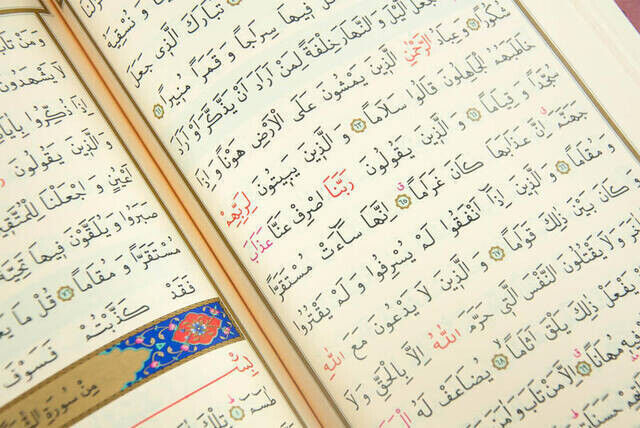 تَبَارَكَ الَّذِى جَعَلَ
فِيهَا سِرَاجًا وَقَمَرًا مُنِيرًا ﴿٦١﴾
جَعَلَ الَّيْلَ وَالنَّهَارَ خِلْفَةً لِمَنْ اَرَادَ اَنْ يَذَّكَّرَ اَوْ اَرَادَ
شُكُورًا ﴿٦٢﴾ وَعِبَادُ الرَّحْمٰنِ الَّذِينَ يَمْشُونَ عَلَى الْاَرْضِ هَوْنًا وَاِذَا
خَاطَبَهُمُ الْجَاهِلُونَ قَالُوا سَلَامًا ﴿٦٣﴾ وَالَّذِينَ يَبِيتُونَ لِرَبِّهِمْ
سُجَّدًا وَقِيَامًا ﴿٦٤﴾ وَالَّذِينَ يَقُولُونَ رَبَّنَا اصْرِفْ عَنَّا عَذَابَ
جَهَنَّمَ اِنَّ عَذَابَهَا كَانَ غَرَامًا ﴿٦٥﴾ اِنَّهَا سَآءَتْ مُسْتَقَرًّا
وَمُقَامًا ﴿٦٦﴾ وَالَّذِينَ اِذَآ اَنْفَقُوا لَمْ يُسْرِفُوا وَلَمْ يَقْتُرُوا
وَكَانَ بَيْنَ ذٰلِكَ قَوَامًا ﴿٦٧﴾ وَالَّذِينَ لَا يَدْعُونَ مَعَ اللّٰهِ
وَلَا يَقْتُلُونَ النَّفْسَ الَّتِى حَرَّمَ اللّٰهُ اِلَّا بِالْحَقِّ وَلَا
يَفْعَلْ ذٰلِكَ يَلْقَ اَثَامًا ﴿٦٨﴾ يُضَاعَفْ لَهُ
فِيهِ مُهَانًا ﴿٦٩﴾ اِلَّا مَنْ تَابَ وَاٰمَنَ
وَمَنْ تَابَ
لَا يَشْهَدُونَ
اِذَا ذُكِّرُوا
وَالَّذِينَ يَقُولُونَ
اَعْيُنٍ وَاجْعَلْنَا لِلْمُتَّقِينَ
صَبَرُوا وَيُلَقَّوْنَ فِيهَا تَحِيَّةً
مُسْتَقَرًّا وَمُقَامًا ﴿٧٦﴾ قُلْ مَا
فَقَدْ كَذَّبْتُمْ فَسَوْفَ
مِنْ سُورَةِ
بِسْــ
طٰسٓمٓ ﴿١﴾ تِلْكَ